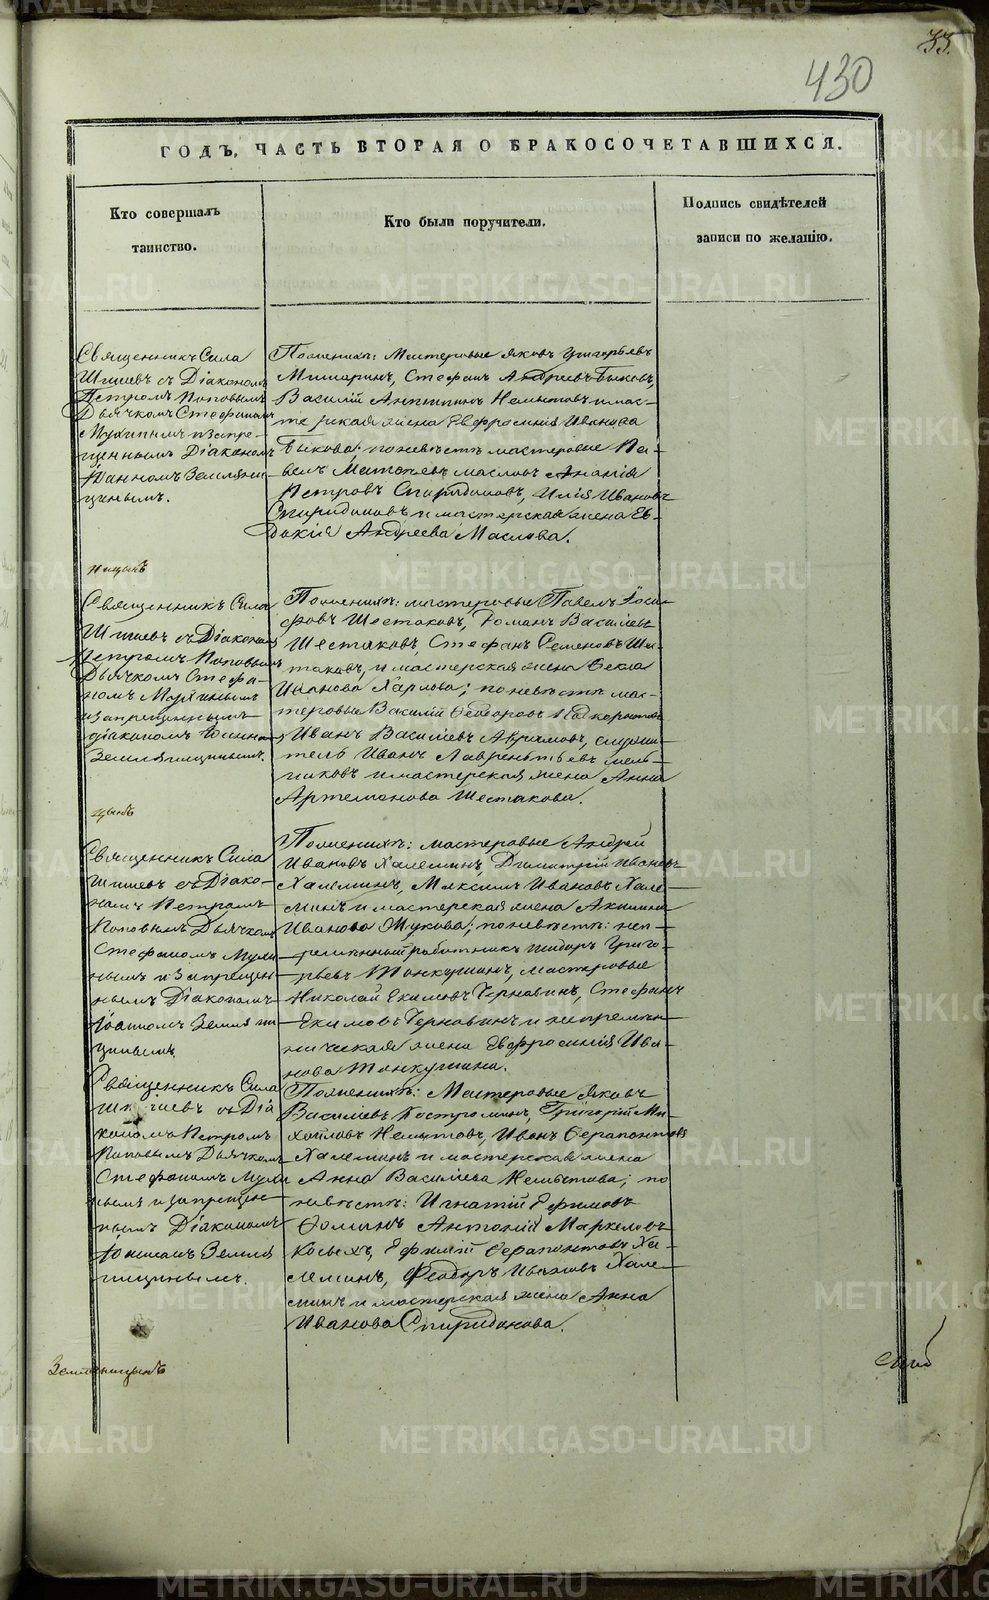 33.
430
ГОДЪ, ЧАСТЬ ВТОРАЯ О БРАКОСОЧЕТАВШИХСЯ.
Кто совершалъ
таинство.
Кто были поручители.
Подпись свидѣтелей
записи по желанію.
Священникъ Сила
съ Діакономъ
Петромъ Поповымъ
Дьячкомъ Стефаномъ
Мухинымъ и запре-
щеннымъ Діакономъ
Іоанномъ Земляни-
цынымъ.
По женихѣ: Мастеровые Яковъ Григорьевъ
Мишаринъ, Стефанъ Андреевъ Быковъ,
Василій Антипинъ Немытовъ и мас-
терская жена Евфросинія Иванова
Быкова; по невѣстѣ мастеровые Па-
велъ Матвѣевъ Масловъ Ананія
Петровъ Спиридоновъ, Илія Ивановъ
Спиридоновъ и мастерская жена Ев-
докія Андреева Маслова.
Священникъ Сила
съ Діакономъ
Петромъ Поповымъ
Дьячкомъ Стефа-
номъ
и запрещеннымъ
діакономъ Іоанномъ
Земляницынымъ.
По женихѣ: мастеровые Павелъ Іоси-
фовъ Шестаковъ, Романъ Васильевъ
Шестаковъ, Стефанъ Семеновъ Ше-
стаковъ, и мастерская жена Фекла
Иванова Харлова; по невѣстѣ мас-
теровые Василій Феодоровъ
Иванъ Васильевъ Абрамовъ, служи-
тель Иванъ Лаврентьевъ Мель-
никовъ и мастерская жена Анна
Артемонова Шестакова.
Священникъ Сила
съ Діако-
номъ Петромъ
Поповымъ Дьячкомъ
Стефаномъ Мухи
нымъ и запрещен-
нымъ Діакономъ
Іоанномъ Земляни
цынымъ.
По женихѣ: мастеровые Андрей
Ивановъ Халеминъ, Димитрій Ивановъ
Халеминъ, Максимъ Ивановъ Хале-
минъ и мастерская жена Акилина
Иванова Жукова; по невѣстѣ: неп-
ремѣнный работникъ Исидоръ Григо-
рьевъ Тонкушинъ, мастеровые
Николай Екимовъ Чернавинъ, Стефанъ
Екимовъ Чернавинъ и непремѣн-
ническая жена Евфросинія Ива-
нова Тонкушина.
Священникъ Сила
съ Діа
кономъ Петромъ
Поповымъ Дьячкомъ
Стефаномъ Мухи
нымъ и запрещен-
нымъ Діакономъ
Іоанномъ Земля
ницынымъ.
По женихѣ: Мастеровые Яковъ
Васильевъ Костроминъ, Григорій Ми-
хайловъ Немытовъ, Иванъ Ферапонтовъ
Халеминъ и мастерская жена
Анна Васильева Немытова; по
невѣстѣ: Игнатій Ефимовъ
Фоминъ Антоній Маркеловъ
Косыхъ, Ефимій Ферапонтовъ Ха-
леминъ, Феодоръ Ивановъ Хале-
минъ и мастерская жена Анна
Иванова Спиридонова.